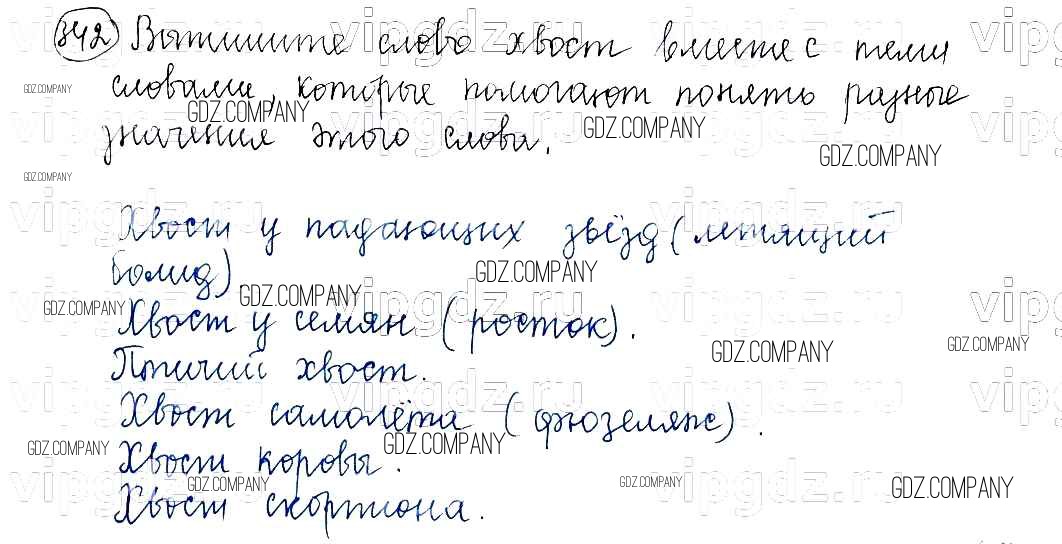 342 Выпишите слово хвост вместе с теми
словами, которые помогают понять разные
значения этого слова.
Хвост у падающих звёзд (летящий
болид)
Хвост у семян (росток).
Птичий хвост.
Хвост самолёта (фюзеляж).
Хвост коровы.
Хвост скорпиона.